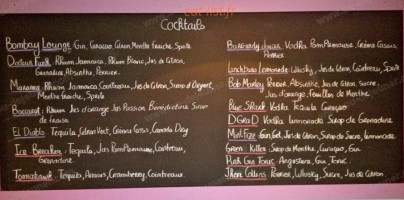 eat-list.fr
Cocktails
Bombay Lounge: Gin, Curaçao, Citron, Menthe fraiche, Sprite
Docteur Funk: Rhum Jamaica, Rhum Blanc, Jus de Citron,
Grenadine, Absinthe, Perrier.
Maracana: Rhum Jamaica Contreau, Jus de Citron, Sirop d'Orgeat,
Menthe fraiche, Sprite
Baccarat: Rhum Jus d'orange Jus Passion Bénédictine Sirop
de fraise
El Diablo: Tequila, Citron Vert, Crème Cassis, Canada Dry
Ice Breaker: Tequila, Jus Pamplemousse, Cointreau,
Grenadine.
Tomahawk: Tequila, Ananas, Cramberry, Cointreau.
Burgundy Juice: Vodka Pamplemousse, Crème Cassis,
Perrier
Lynchburg Lemonade: Whisky, Jus de Citron, Cointreau, Sprite
Bob Marley: Perrier, Absinthe, Jus de Citron, Sucre,
Jus d'orange, feuilles de Menthe.
Blue Vodka Tequila Curaçao
Vodka Limonade Sirop de Grenadine
Gin Get, Jus de Citron, Sirop de Sucre, Limonade
Green Killer: Sirop de Menthe, Curaçao, Gin
Pink Gin Tonic: Angostura, Gin, Tonic.
Collins: Perrier, Whisky, Sucre, Jus de Citron